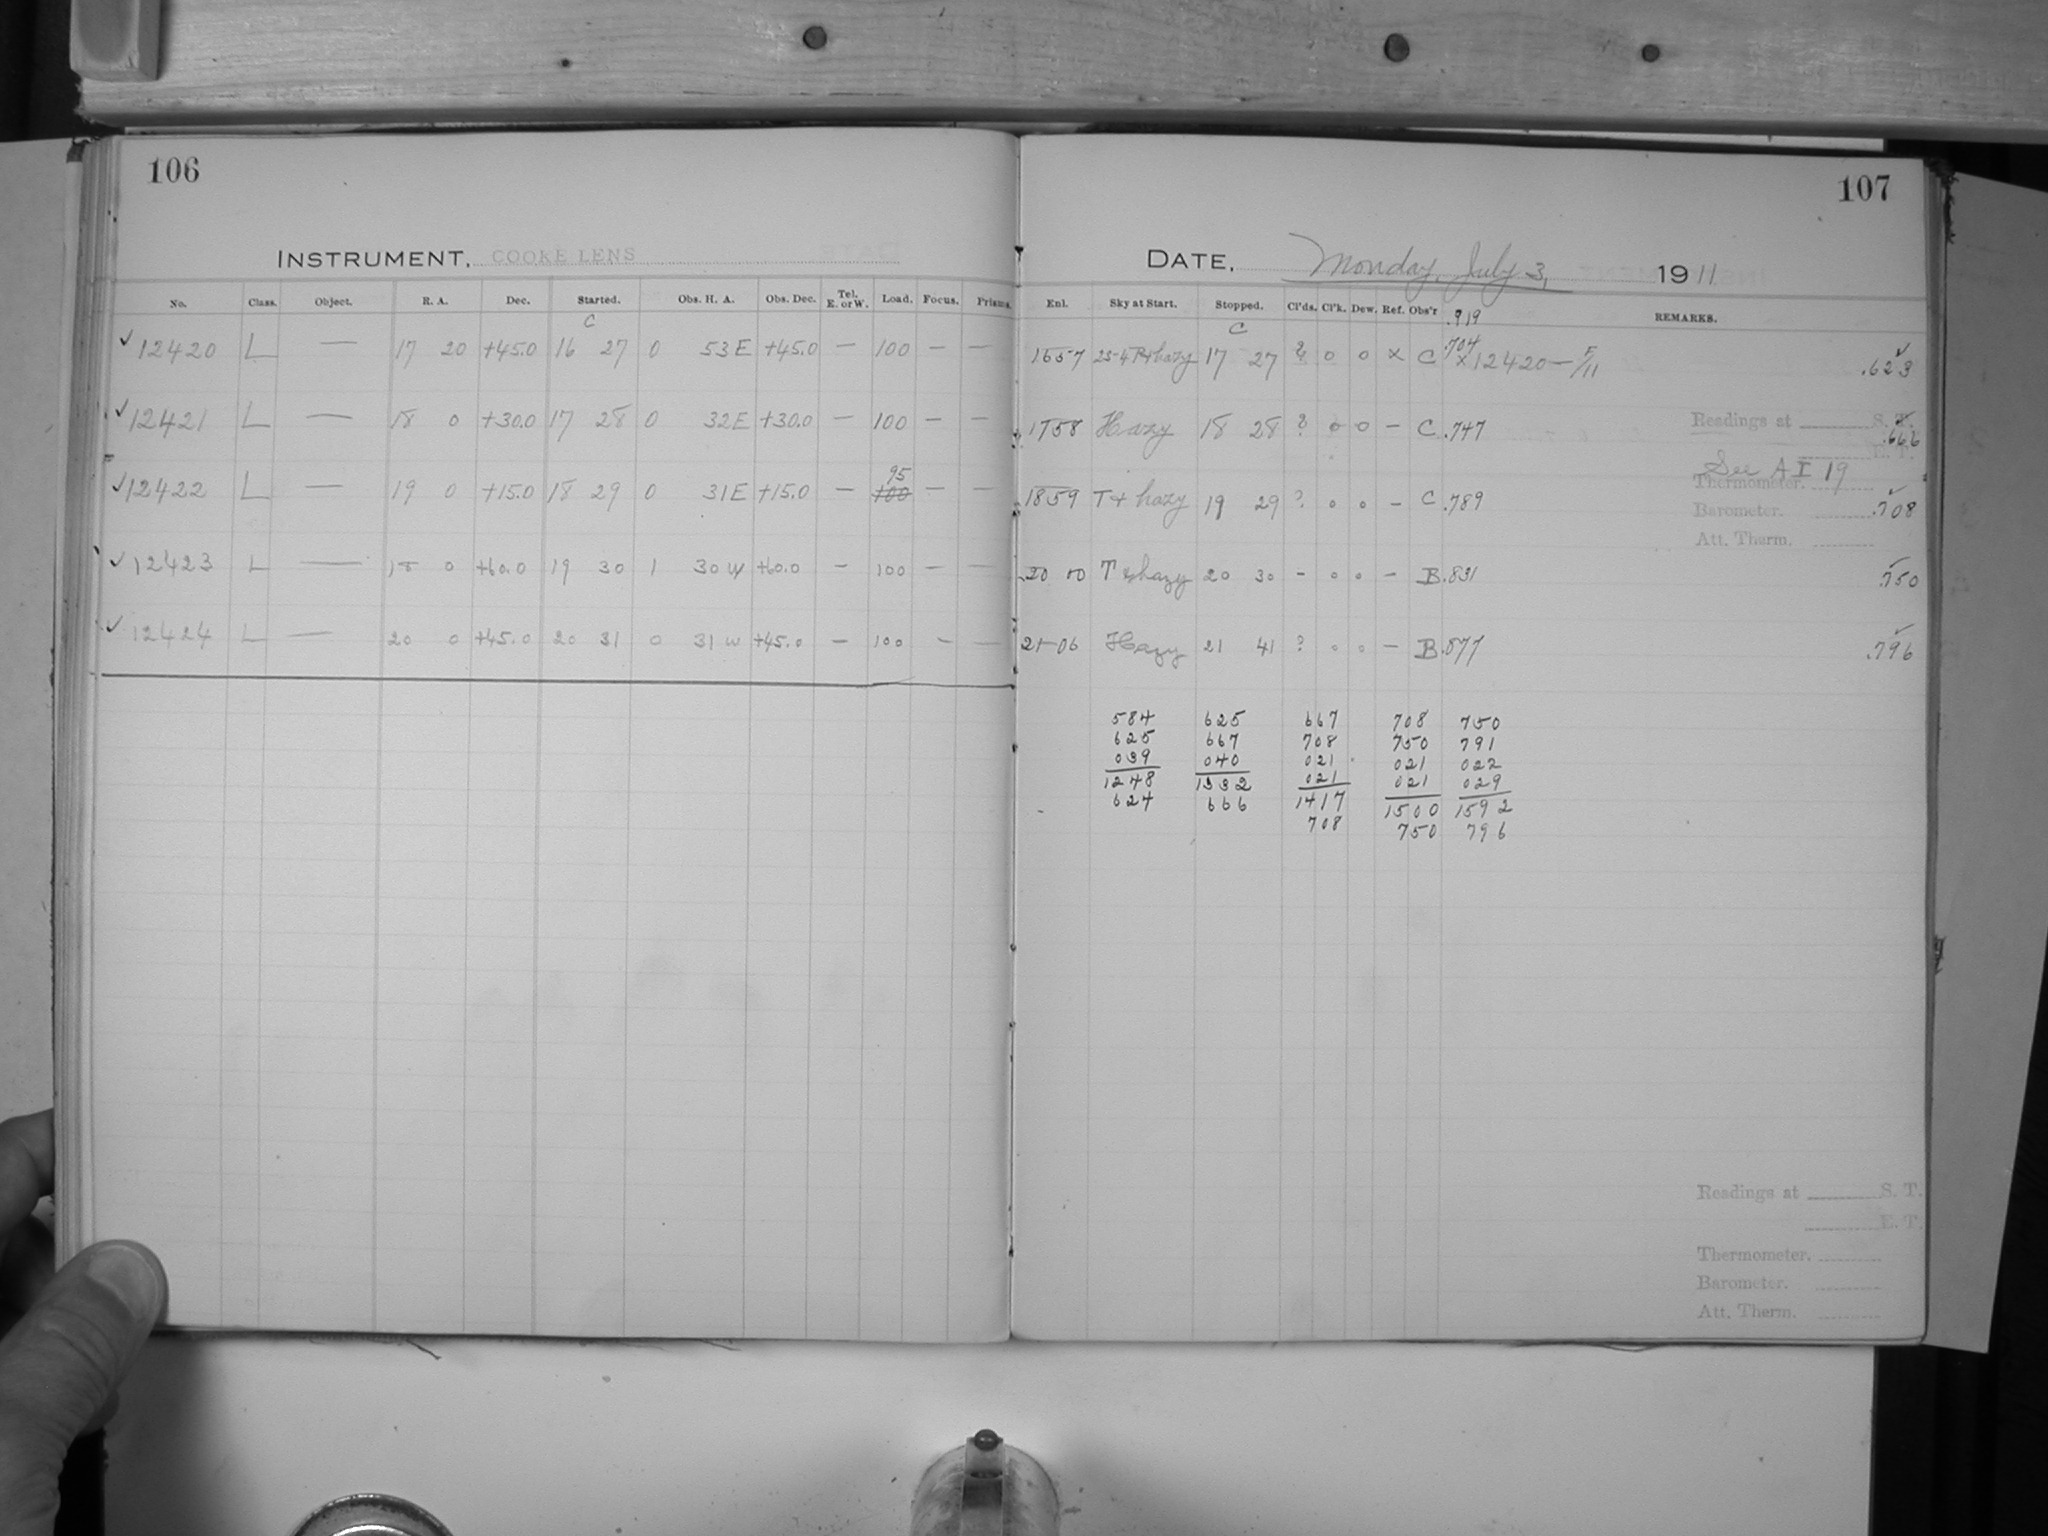 106
INSTRUMENT, COOKE LENS
No. Class. Object. R. A. Dec. Started. Obs. H. A. Obs. Dec. Tel. E. or W. Load. Focus. Prisms.
C
12420 L — 17 20 +45.0 16 27 0 53 E +45.0 — 100 — —
12421 L — 18 0 +30.0 17 28 0 32 E +30.0 — 100 — —
95
12422 L — 19 0 +15.0 18 29 0 31 E +15.0 — 100 — —
12423 L — 18 0 +60.0 19 30 1 30 W +60.0 — 100 — —
12424 L — 20 0 +45.0 20 31 0 31 W +45.0 — 100 — —
107
DATE, Monday, July 3, 1911
Enl. Sky at Start. Stopped. Cl'ds. Cl'k. Dew. Ref. Obs'r REMARKS.
C .919
.704
1657 hazy 17 27 ? 0 0 × C ×12420—5/11 .623
1758 Hazy 18 28 ? 0 0 — C .747
Readings at S. T.
.666
E. T.
See A I 19
Thermometer.
1859 T + hazy 19 29 ? 0 0 — C .789
Barometer. .708
Att. Therm.
20 00 T & hazy 20 30 – 0 0 — B .831 .750
21 06 Hazy 21 41 ? 0 0 — B .877 .796
584 625 667 708 750
625 667 708 750 791
039 040 021 021 022
1248 1332 021 021 029
624 666 1417 1500 1592
708 750 796
Readings at S. T.
E. T.
Thermometer.
Barometer.
Att. Therm.